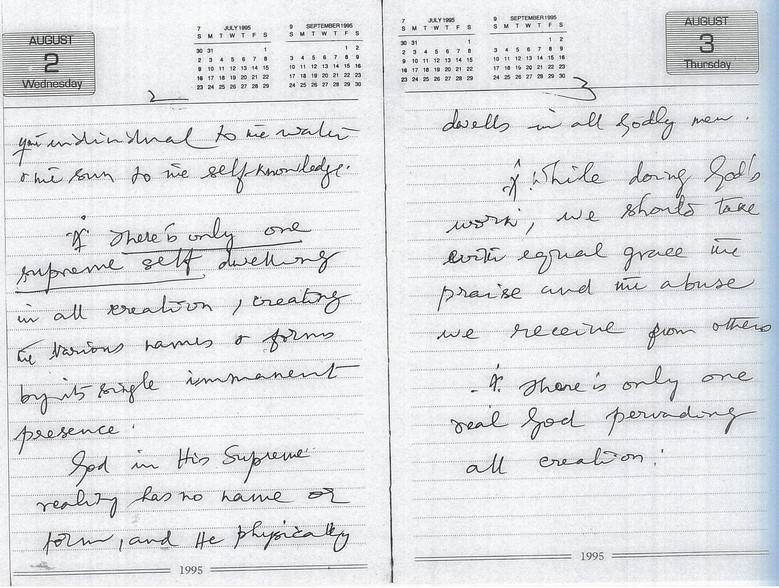 AUGUST
2
Wednesday
7 JULY 1995
S M T W T F S
30 31 1
2 3 4 5 6 7 8
9 10 11 12 13 14 15
16 17 18 19 20 21 22
23 24 25 26 27 28 29
9 SEPTEMBER 1995
S M T W T F S
1 2
3 4 5 6 7 8 9
10 11 12 13 14 15 16
17 18 19 20 21 22 23
24 25 26 27 28 29 30
2
individual to the water
& the sun to the self-knowledge.
There is only one
supreme self dwelling
in all creation, creating
the various names & forms
by its single immanent
presence.
God in His Supreme
reality has no name or
form, and He physically
1995
7 JULY 1995
S M T W T F S
30 31 1
2 3 4 5 6 7 8
9 10 11 12 13 14 15
16 17 18 19 20 21 22
23 24 25 26 27 28 29
9 SEPTEMBER 1995
S M T W T F S
1 2
3 4 5 6 7 8 9
10 11 12 13 14 15 16
17 18 19 20 21 22 23
24 25 26 27 28 29 30
AUGUST
3
Thursday
3
dwells in all Godly men.
While doing God's
work, we should take
with equal grace the
praise and the abuse
we receive from others
There is only one
real God pervading
all creation.
1995